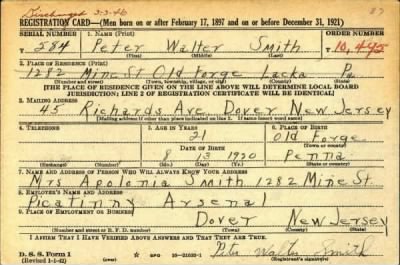 Discharged 3-3-46
REGISTRATION CARD—(Men born on or after February 17, 1897 and on or before December 31, 1921)
SERIAL NUMBER 1. NAME (Print) ORDER NUMBER
S 284 Peter Walter Smith 10,495
(First) (Middle) (Last)
2. PLACE OF RESIDENCE (Print)
1282 Mine St Old Forge Lacka Pa
(Number and street) (Town, township, village, or city) (County) (State)
[THE PLACE OF RESIDENCE GIVEN ON THE LINE ABOVE WILL DETERMINE LOCAL BOARD
JURISDICTION; LINE 2 OF REGISTRATION CERTIFICATE WILL BE IDENTICAL]
3. MAILING ADDRESS
45 Richards Ave Dover New Jersey
[Mailing address if other than place indicated on line 2. If same insert word same]
4. TELEPHONE 5. AGE IN YEARS 6. PLACE OF BIRTH
21 Old Forge
DATE OF BIRTH (Town or county)
8 13 1920 Penna
(Exchange) (Number) (Mo.) (Day) (Yr.) (State or country)
7. NAME AND ADDRESS OF PERSON WHO WILL ALWAYS KNOW YOUR ADDRESS
Mrs Apolonia Smith 1282 Mine St
8. EMPLOYER'S NAME AND ADDRESS
Picatinny Arsenal
9. PLACE OF EMPLOYMENT OR BUSINESS
Dover New Jersey
(Number and street or R. F. D. number) (Town) (County) (State)
I AFFIRM THAT I HAVE VERIFIED ABOVE ANSWERS AND THAT THEY ARE TRUE.
D. S. S. Form 1 Peter Walter Smith
(Revised 1-1-42) (over) GPO 16—21630-1 (Registrant's signature)